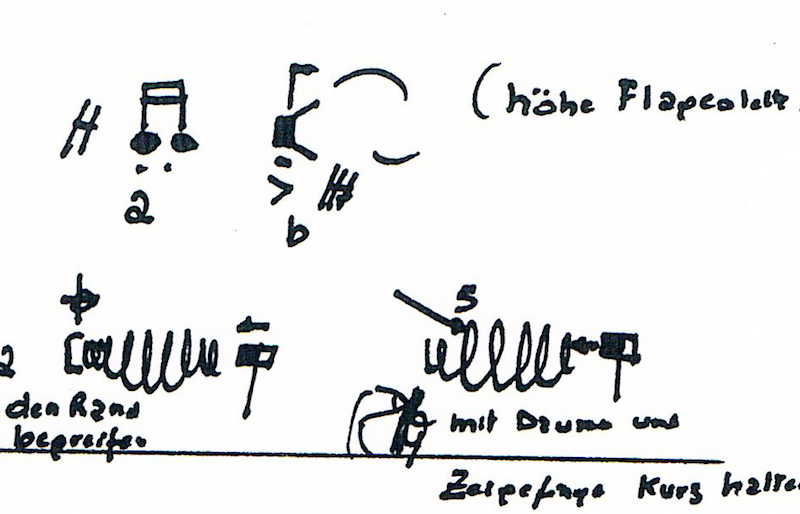 (höhe Flageolett
2
b
5
2
den Rand
begreifen
mit Daumen und
Zeigefinger kurz halten